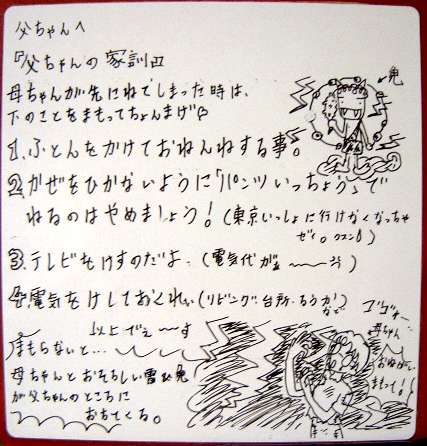 父ちゃんへ
『父ちゃんの家訓』
母ちゃんが先にねてしまった時は、
下のことをまもってちょんまげ
1.ふとんをかけておねんねする事。
2.かぜをひかないように「パンツいっちょう」で
ねるのはやめましょう!(東京いっしょに行けなくなっちゃ
ゼィ。クスン)
3.テレビをけすのだよ。(電気代が〜〜〜)
4.電気をけしておくれい(リビング、台所、ろうかなど)
以上でぇ〜〜す
まもらないと…
母ちゃんとおそろしい雷鬼
が父ちゃんのところに
おちてくる。
鬼
ゴゴォー
母ちゃん
おねがい、
まもって!!